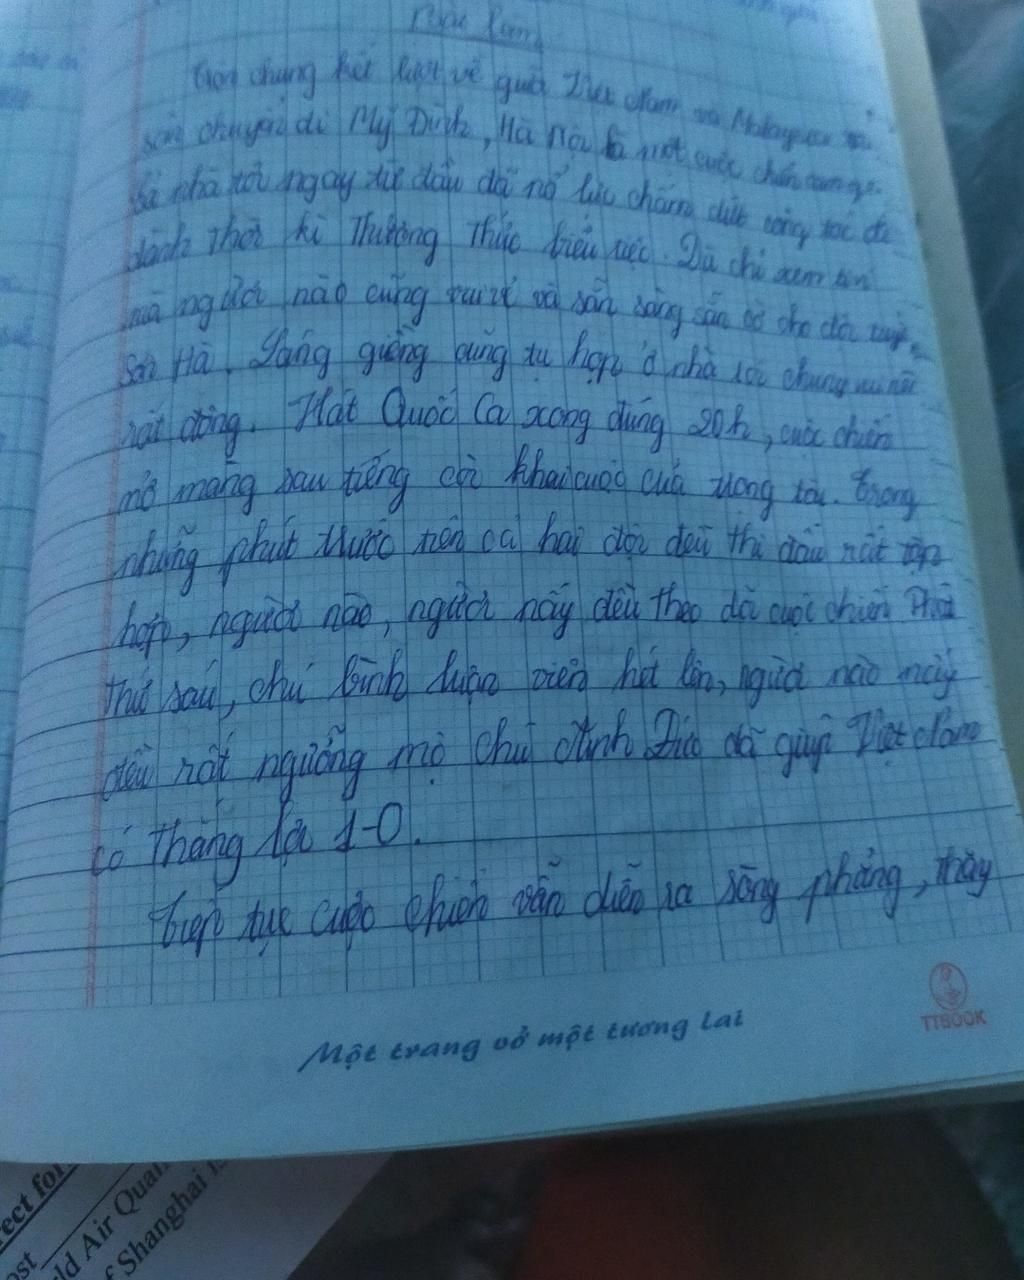 Bài làm
Trận chung kết lượt về giữa Việt Nam và Malaysia
sân chuyển di Mỹ Đình, Hà Nội là một cuộc chiến
cả nhà tôi ngay từ đầu đã nổ lực chấm dứt công tác để
dành thời kì thưởng thức tiệc. Dù chỉ xem
mà người nào cũng vui vẻ và sẵn sàng sẵn cờ cho đội
Hà. Láng giềng cũng tụ họp ở nhà tôi
rất đông. Hát Quốc Ca xong đúng 20h, cuộc chiến
mở màng sau tiếng còi khai cuộc của trọng tài. Trong
những phút trước nên cả hai đội đều thi đấu rất
hợp, người nào, người nấy đều theo dõi cuộc chiến. Phút
thứ sáu, chú bình luận viên hét lên, người nào nấy
đều rất ngưỡng mộ chú Anh Đức đã giúp Việt Nam
có thắng lợi 1-0.
Tiếp tục cuộc chiến vẫn diễn ra sòng phẳng, thầy
Một trang vở một tương lai
TTBOOK
rect for
ost
ld Air Qua
f Shanghai